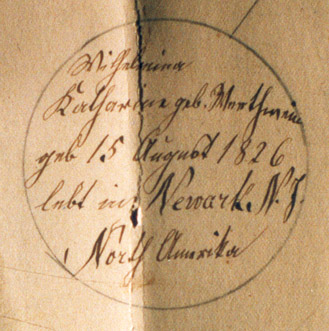 Wilhelmina
Katharine geb. Werthwein
geb 15 August 1826
lebt in Newark. N. J.
North Amerika